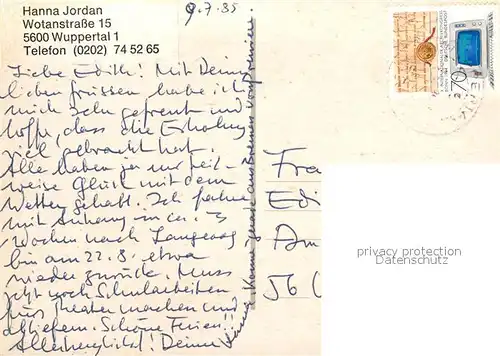 Hanna Jordan
Wotanstraße 15
5600 Wuppertal 1
Telefon (0202) 74 52 65
9.7.85
Liebe Edith! Mit Deinen
lieben Grüssen habe ich
mich sehr gefreut und
hoffe, dass die Erholung
viel gebracht hat.
Alle haben ja nur teil-
weise Glück mit dem
Wetter gehabt. Ich fahre
mit Anhang in ca. 3
Wochen nach Langeoog
bin am 22.8. etwa
wieder zurück. Muss
jetzt noch Schularbeiten
fürs Theater machen und
abliefern. Schöne Ferien!!
Allerherzlichst! Deine
Hanna
Fra
Edi
Am
56
70
privacy protection
Datenschutz